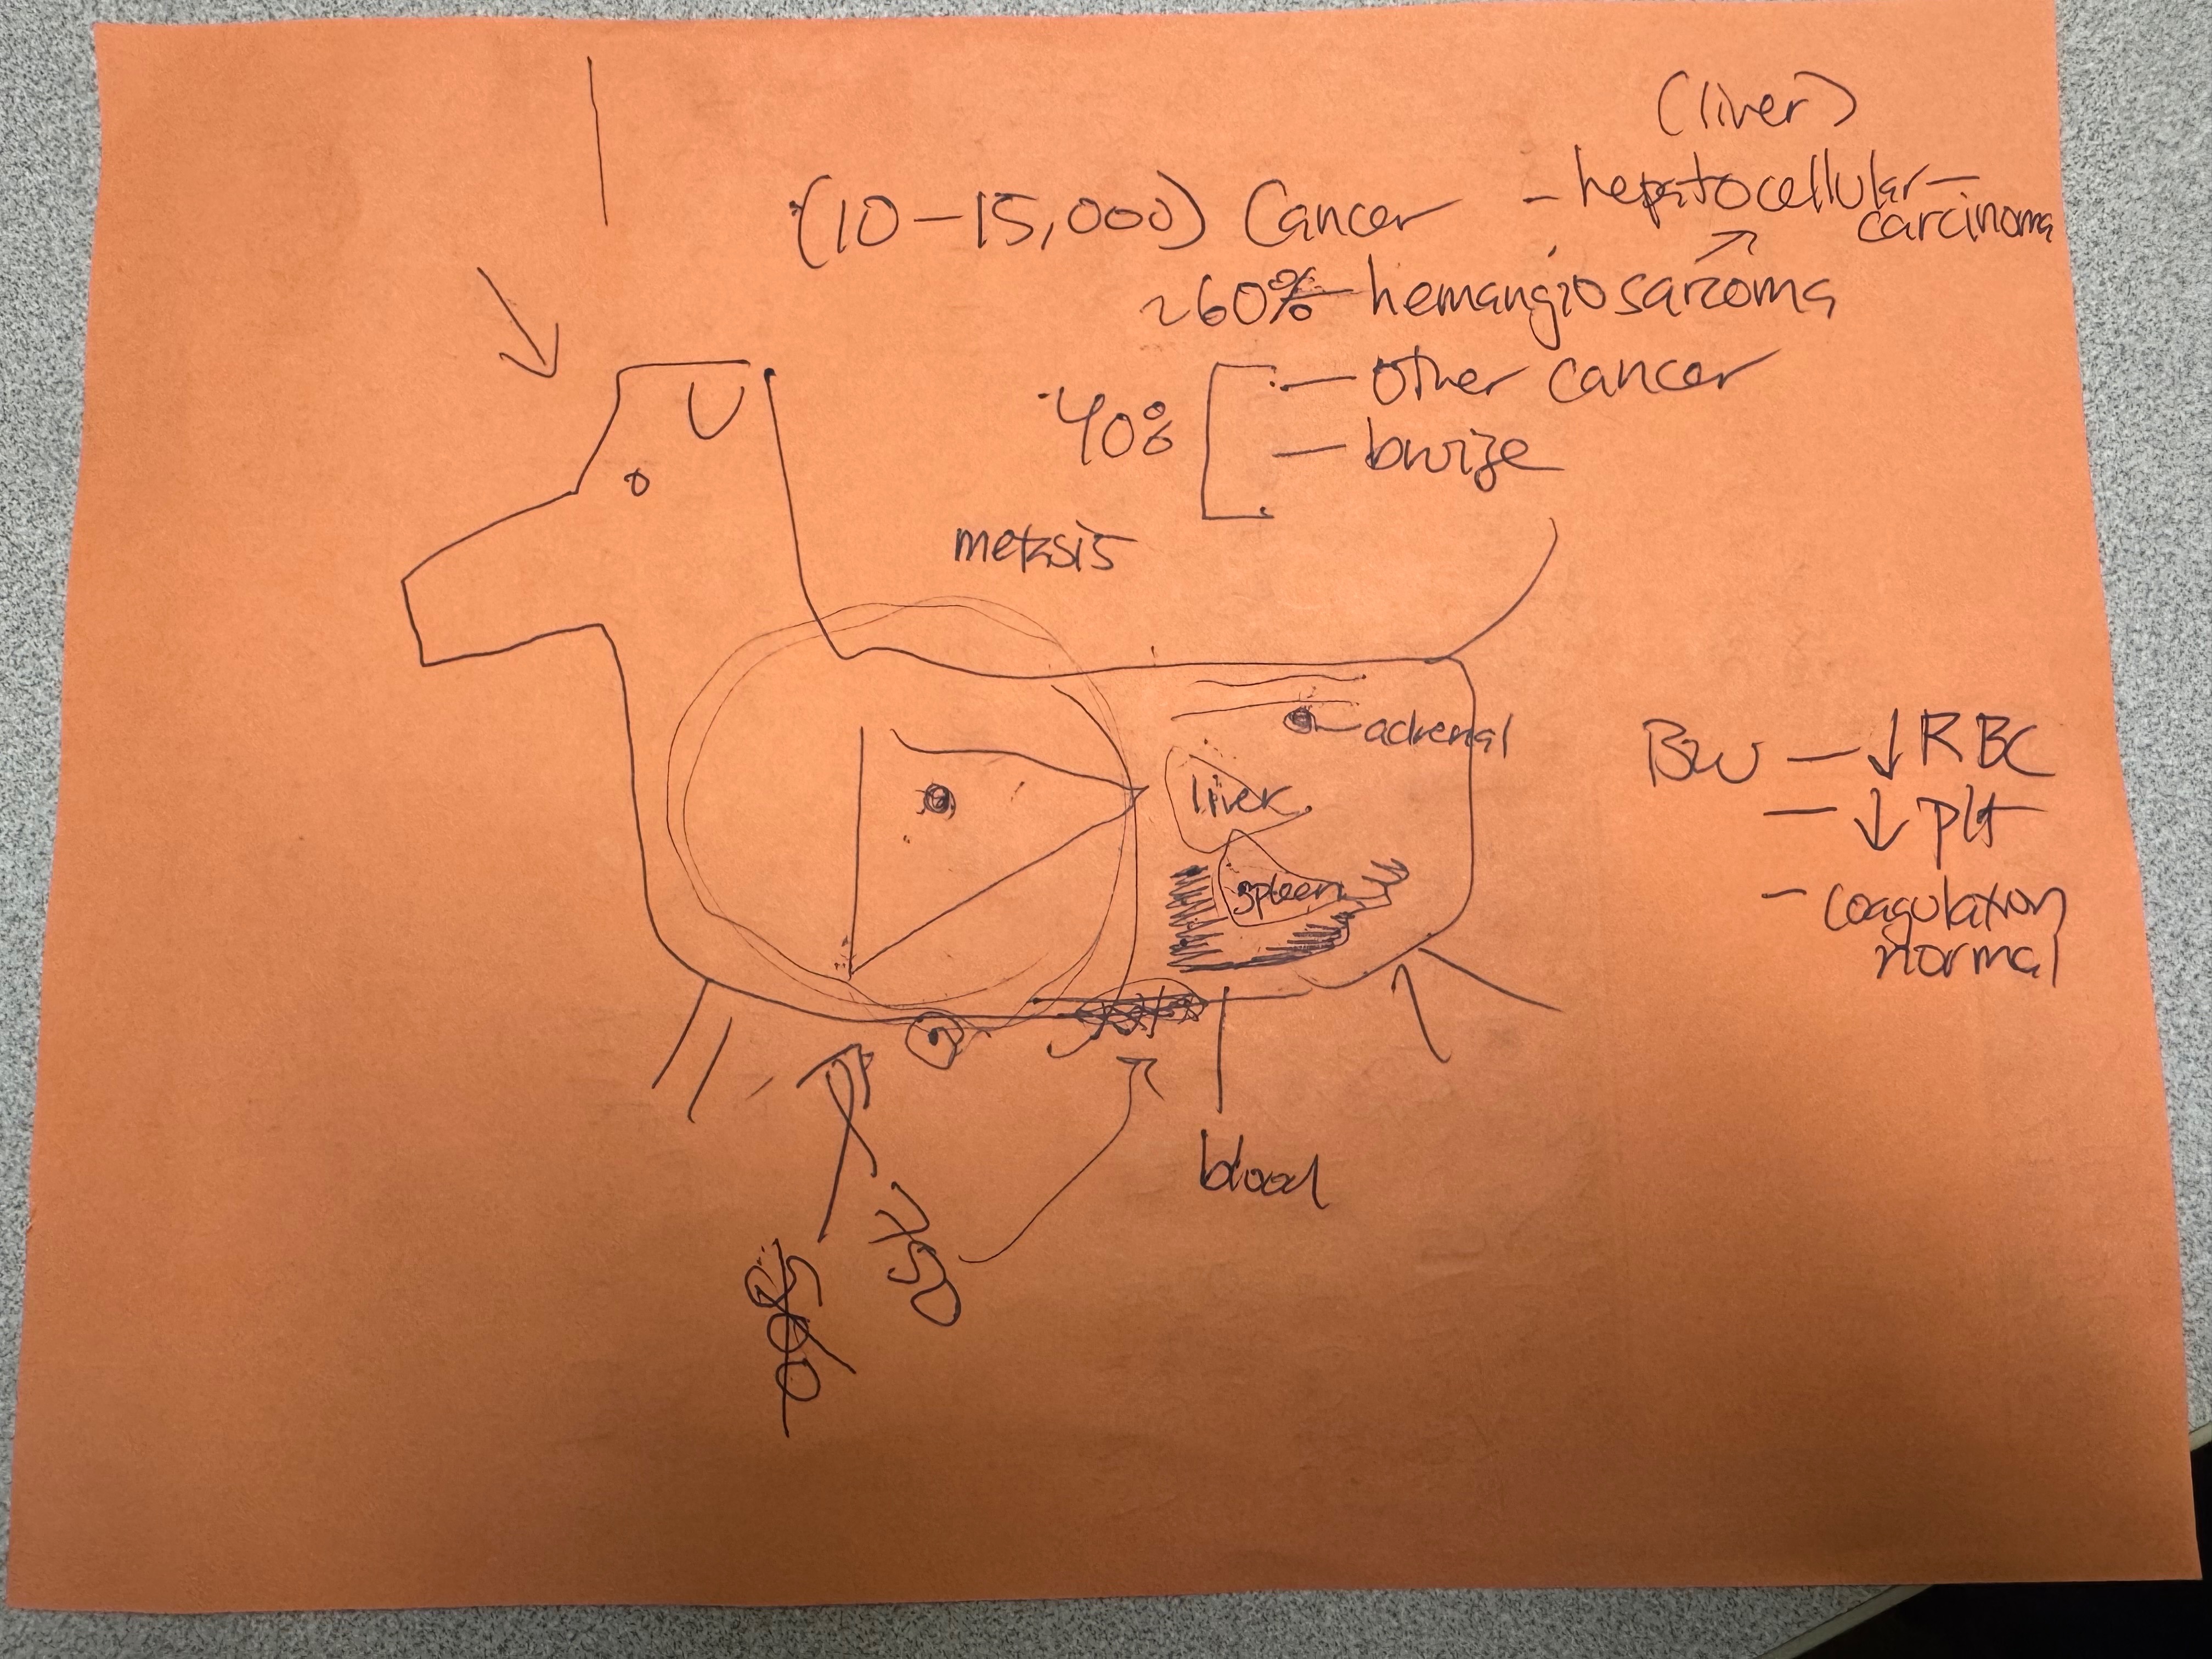 (liver)
(10-15,000) Cancer - hepatocellular
carcinoma
~60% hemangiosarcoma
40% - other cancer
- bruise
metasis
adrenal
liver
spleen
BW - ↓ RBC
- ↓ plt
- coagulation
normal
blood